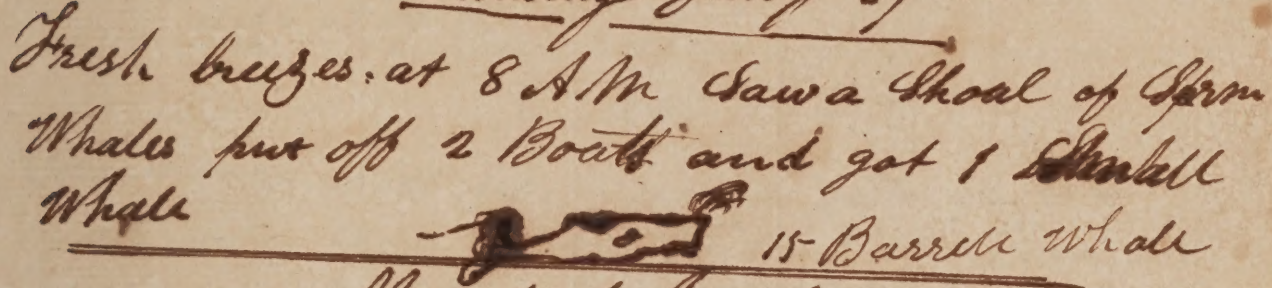 Fresh breezes. at 8 AM Saw a Shoal of Sperm
Whales put off 2 Boats and got 1 Small
Whale
15 Barrell Whale